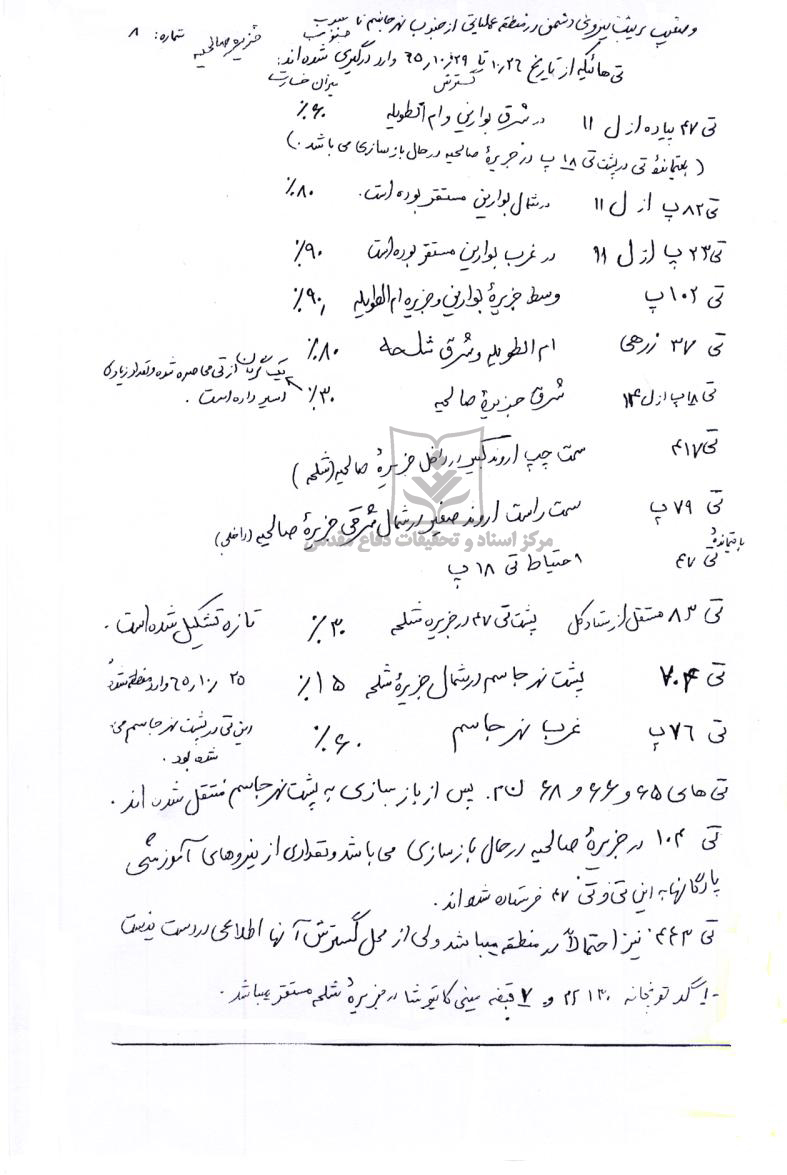 وضعیت و ترتیب نیروی دشمن در منطقه عملیاتی از جنوب نهر جاسم تا جنوب جزیره صالحیه شماره: ۸
تی هائیکه از تاریخ ۱۰/۲۶ تا ۶۵/۱۰/۲۹ وارد درگیری شده اند:
گسترش میزان خسارت
تی ۴۷ پیاده از ل ۱۱ در شرق بوارین و ام الطویله ۶۰٪
( باقیمانده تی در پشت تی ۱۸ پ در جزیرهٔ صالحیه در حال بازسازی می باشد . )
تی ۸۲ پ از ل ۱۱ در شمال بوارین مستقر بوده است. ۸۰٪
تی ۲۳ پ از ل ۱۱ در غرب بوارین مستقر بوده است ۹۰٪
تی ۱۰۲ پ وسط جزیرهٔ بوارین و جزیره ام الطویله ۹۰٪
تی ۳۷ زرهی ام الطویله و شرق شلحه ۸۰٪
تی ۱۸ پ از ل ۱۴ شرق جزیرهٔ صالحیه ۳۰٪ یک گردان از تی محاصره شده و تعداد زیادی
اسیر داده است .
تی ۴۱۷ سمت چپ اروند کبیر در داخل جزیرهٔ صالحیه (شلحه )
تی ۷۹ پ سمت راست اروند صغیر در شمال شرقی جزیرهٔ صالحیه (داخلی)
باقیماندهٔ تی ۴۷ احتیاط تی ۱۸ پ
تی ۸۳ مستقل از ستاد کل پشت تی ۴۷ در جزیره شلحه ۳۰٪ تازه تشکیل شده است .
تی ۷۰۴ پشت نهر جاسم در شمال جزیرهٔ شلحه ۱۵٪ ۶۵/۱۰/۲۵ وارد منطقه شده
تی ۷۶ پ غرب نهر جاسم ۶۰٪ این تی در پشت نهر جاسم
شده بود .
تی های ۶۵ و ۶۶ و ۶۸ ن م. پس از بازسازی به پشت نهر جاسم منتقل شده اند .
تی ۱۰۴ در جزیرهٔ صالحیه در حال بازسازی می باشد و تعدادی از نیروهای آموزشی
پادگانها به این تی و تی ۴۷ فرستاده شده اند .
تی ۴۴۳ نیز احتمالاً در منطقه میباشد ولی از محل گسترش آنها اطلاعی در دست نیست
- گد توپخانه ۱۳۰ م م و ۷ قبضه مینی کاتیوشا در جزیرهٔ شلحه مستقر میباشد .
مرکز اسناد و تحقیقات دفاع مقدس